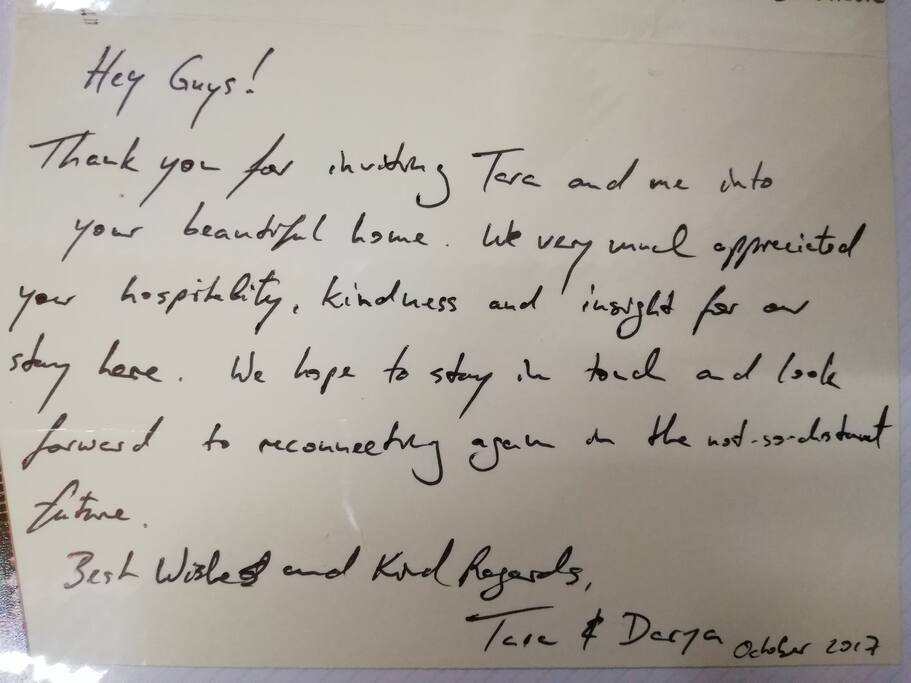 Hey Guys!
Thank you for inviting Tara and me into
your beautiful home. We very much appreciated
your hospitality, kindness and insight for our
stay here. We hope to stay in touch and look
forward to reconnecting again in the not-so-distant
future.
Best Wishes and Kind Regards,
Tara & Darya October 2017